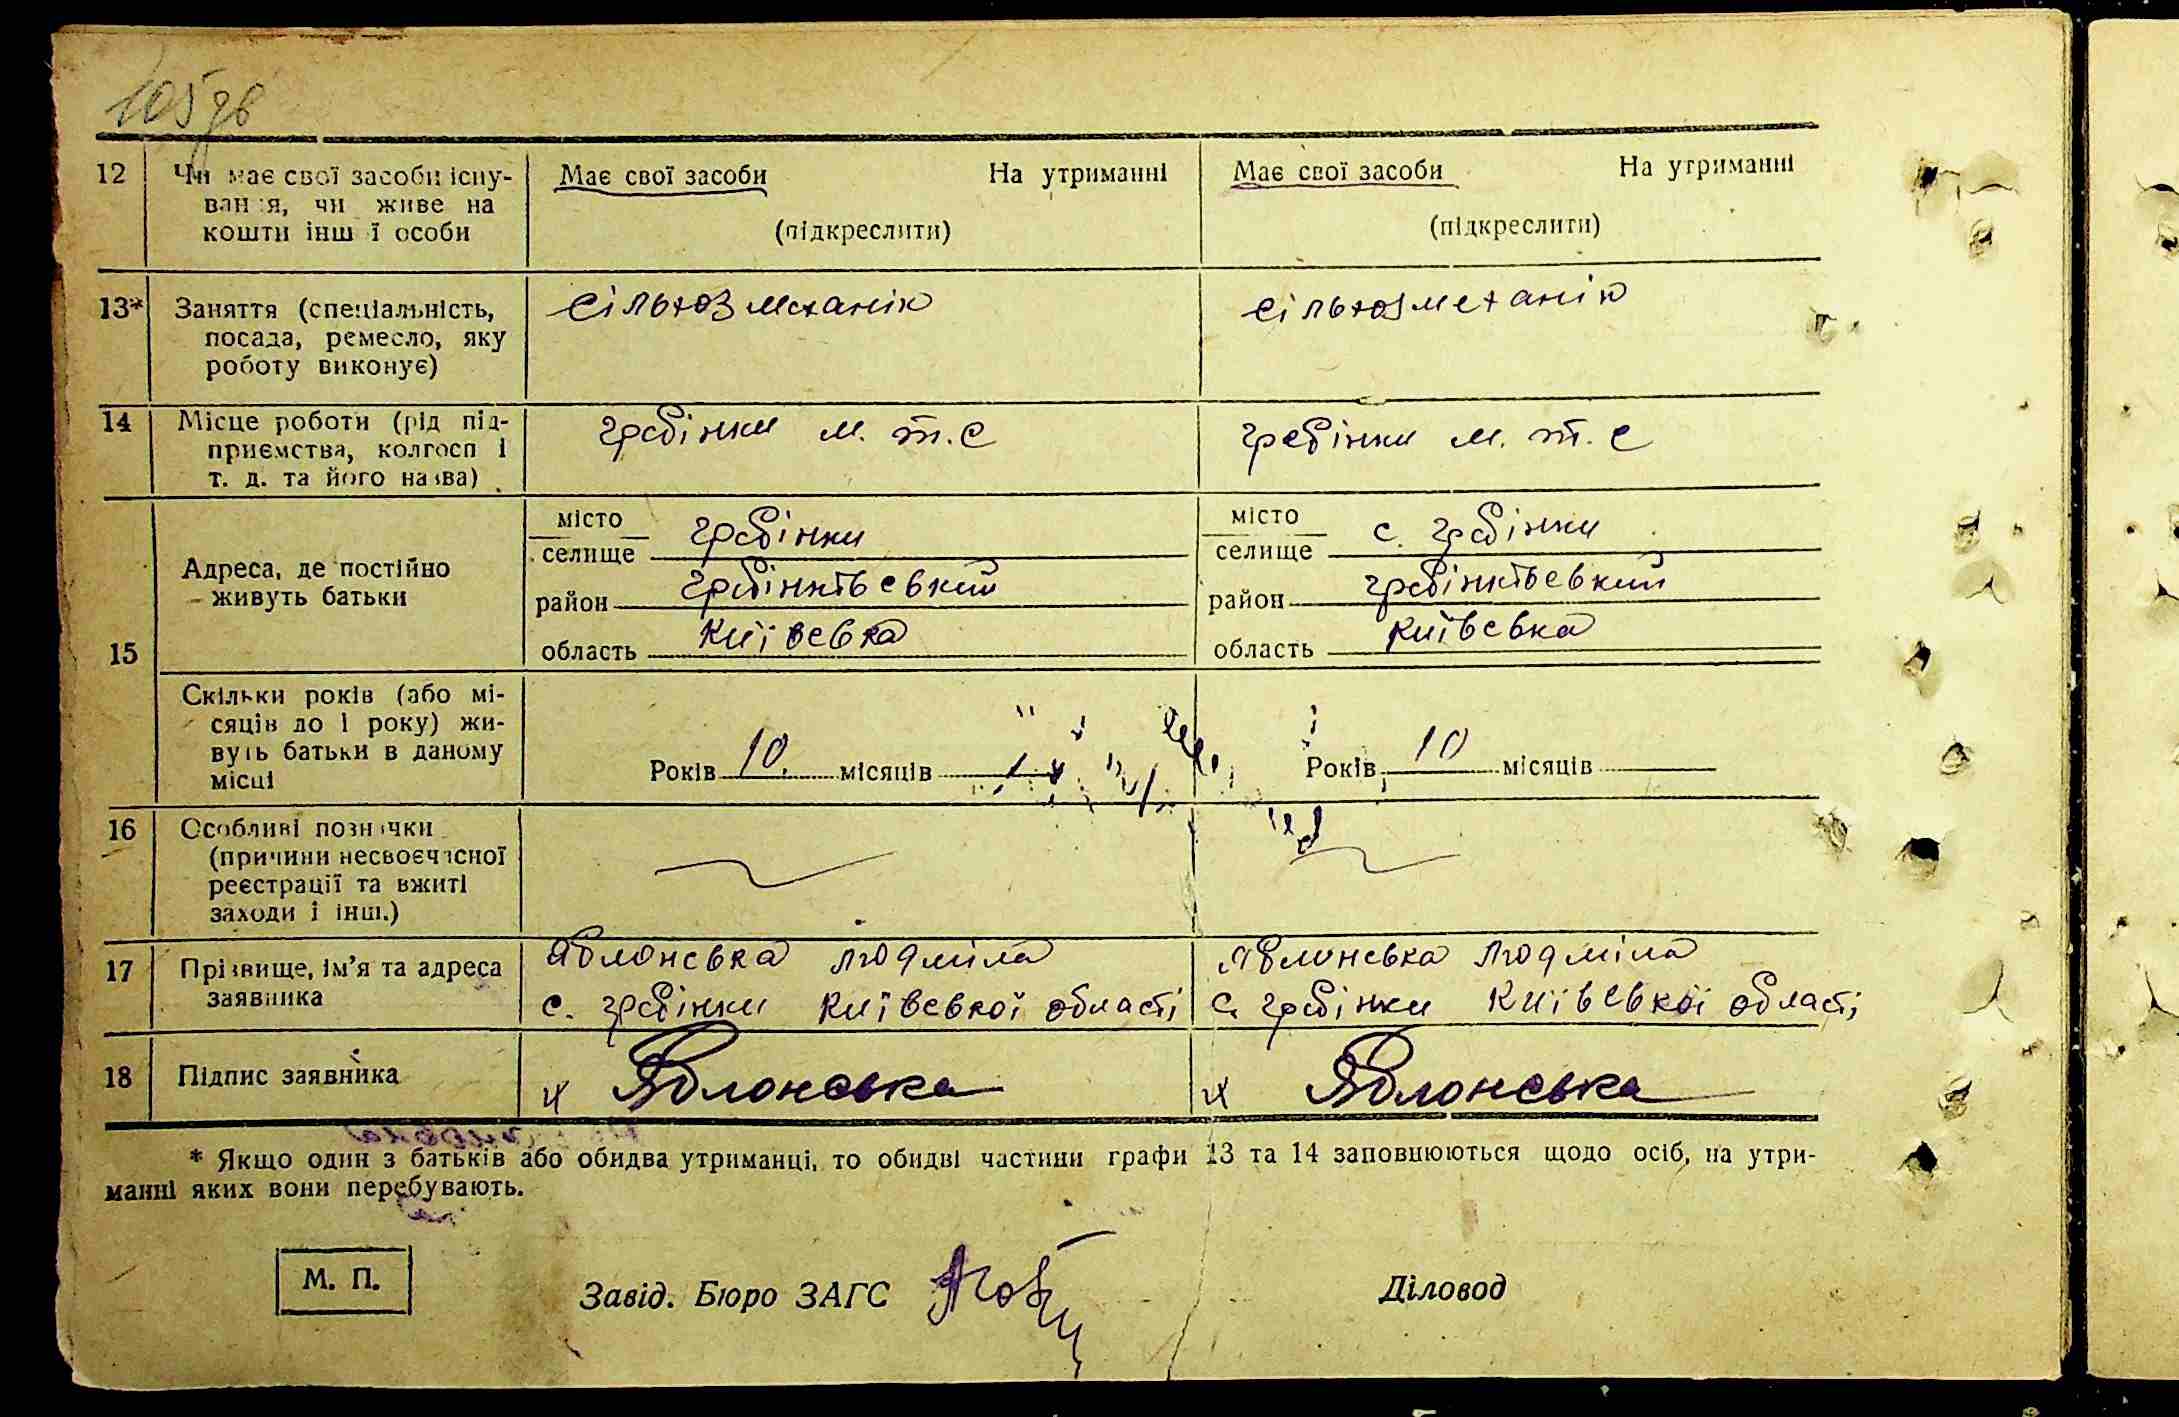 105 зв
12 Чи має свої засоби існу-
вання, чи живе на
кошти іншої особи
Має свої засоби На утриманні
(підкреслити)
Має свої засоби На утриманні
(підкреслити)
13* Заняття (спеціальність,
посада, ремесло, яку
роботу виконує)
сільхозмеханік
сільхозмеханік
14 Місце роботи (рід під-
приємства, колгосп і
т. д. та його назва)
гребінки м. т. с
гребінки м. т. с
15 Адреса, де постійно
живуть батьки
місто
селище гребінки
район гребінківський
область київська
місто
селище с. гребінки
район гребінківський
область київська
Скільки років (або мі-
сяців до 1 року) жи-
вуть батьки в даному
місці
Років 10. місяців
Років 10 місяців
16 Особливі познички
(причини несвоєчасної
реєстрації та вжиті
заходи і інш.)
17 Прізвище, ім'я та адреса
заявника
яблонська людміла
с. гребінки київської області
яблонська людміла
с. гребінки київської області
18 Підпис заявника
Яблонська
Яблонська
* Якщо один з батьків або обидва утриманці, то обидві частини графи 13 та 14 заповнюються щодо осіб, на утри-
манні яких вони перебувають.
М. П.
Завід. Бюро ЗАГС
Діловод